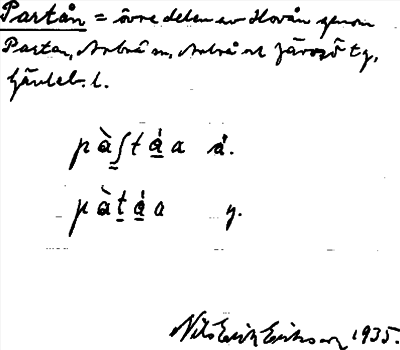 Partån = övre delen av Hovån genom
Partan, Arbrå sn, Arbrå och Järvsö tg,
Gävleb. l.
pàʃtáa ä.
pàtáa y.
Nils Erik Eriksson 1935.